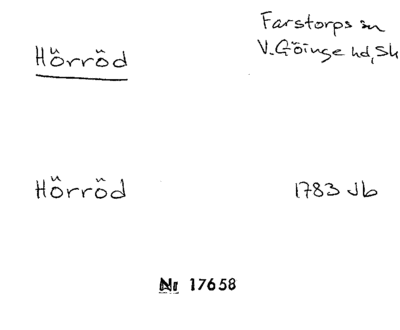 Farstorps sn
Hörröd
V. Göinge hd, Sk
Hörröd
1783 Jb
Nr 17658